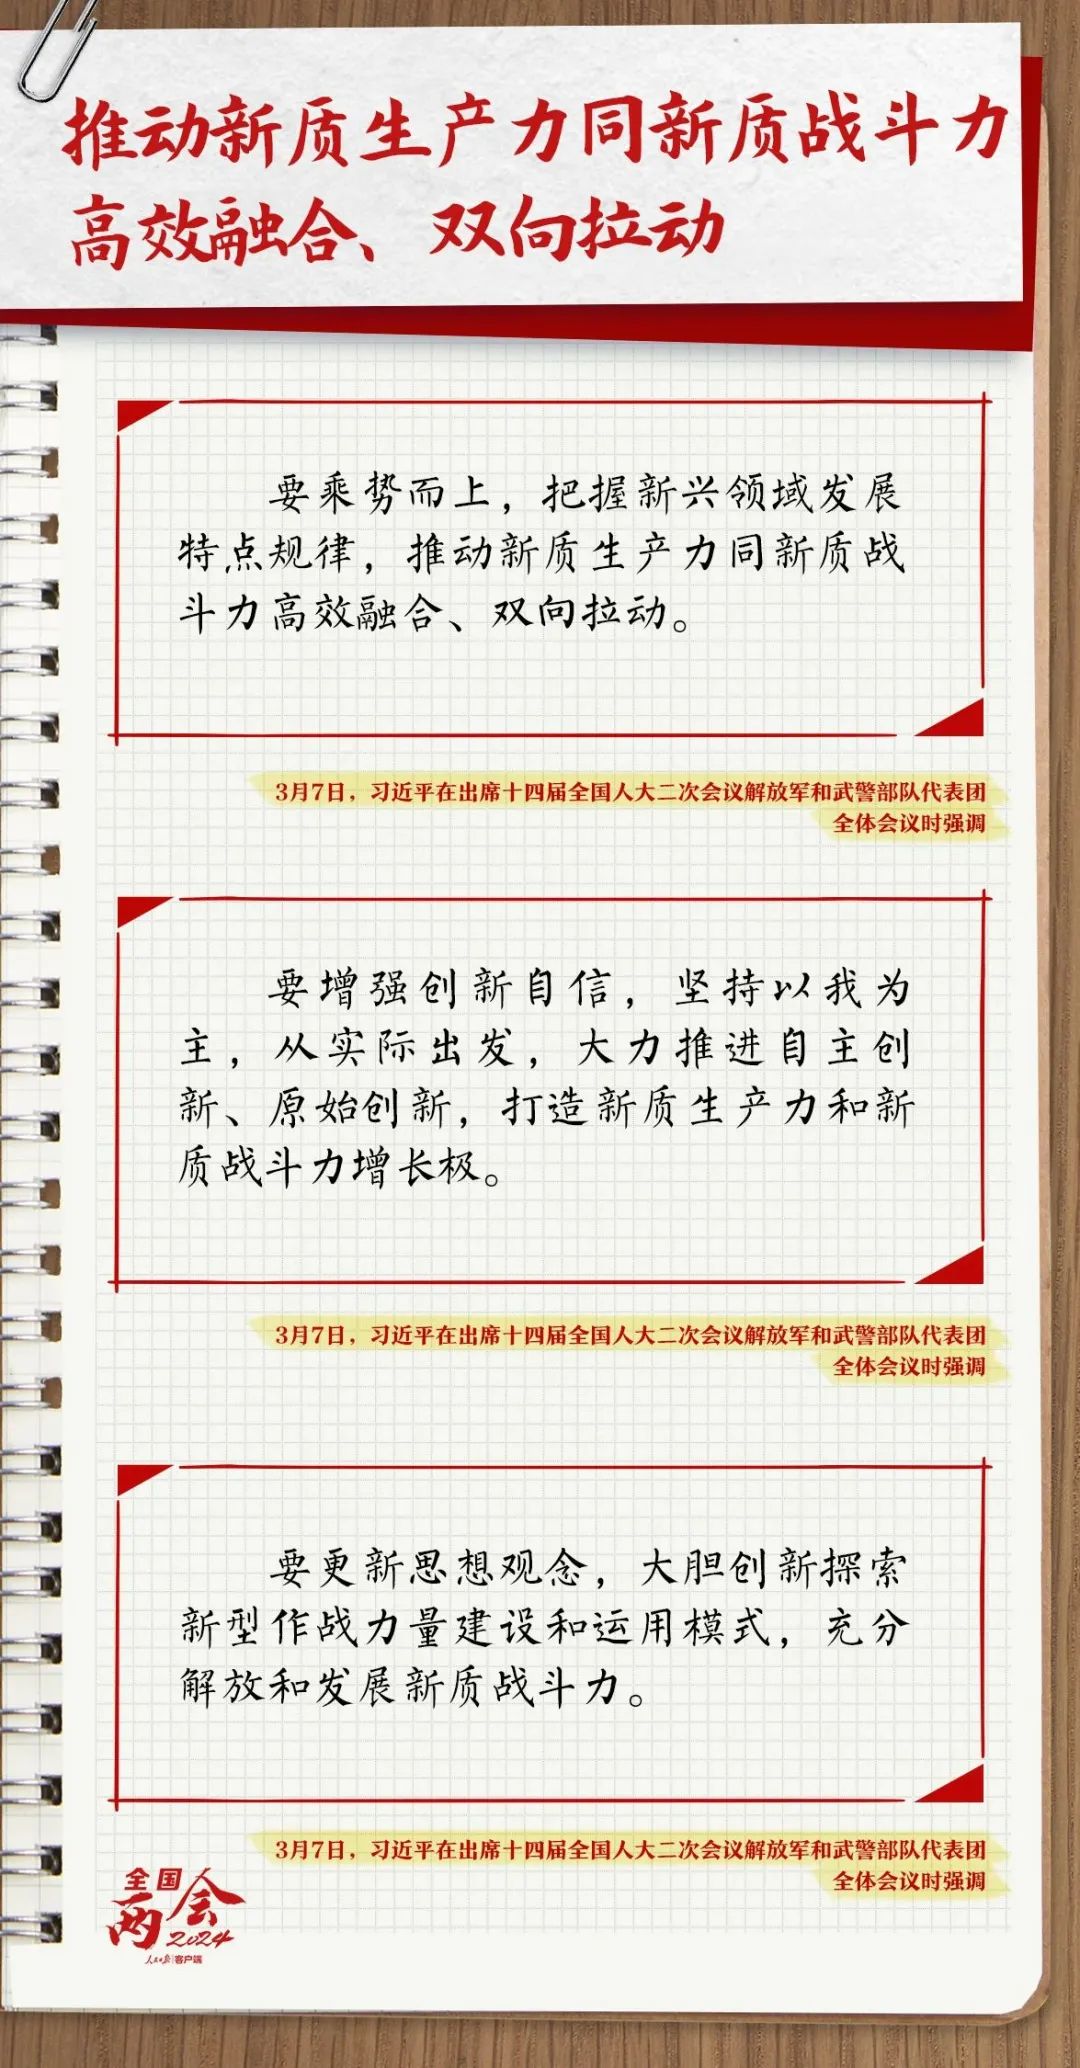 推动新质生产力同新质战斗力
高效融合、双向拉动
要乘势而上，把握新兴领域发展
特点规律，推动新质生产力同新质战
斗力高效融合、双向拉动。
3月7日，习近平在出席十四届全国人大二次会议解放军和武警部队代表团
全体会议时强调
要增强创新自信，坚持以我为
主，从实际出发，大力推进自主创
新、原始创新，打造新质生产力和新
质战斗力增长极。
3月7日，习近平在出席十四届全国人大二次会议解放军和武警部队代表团
全体会议时强调
要更新思想观念，大胆创新探索
新型作战力量建设和运用模式，充分
解放和发展新质战斗力。
3月7日，习近平在出席十四届全国人大二次会议解放军和武警部队代表团
全体会议时强调
全国
两会
2024
人民日报|客户端